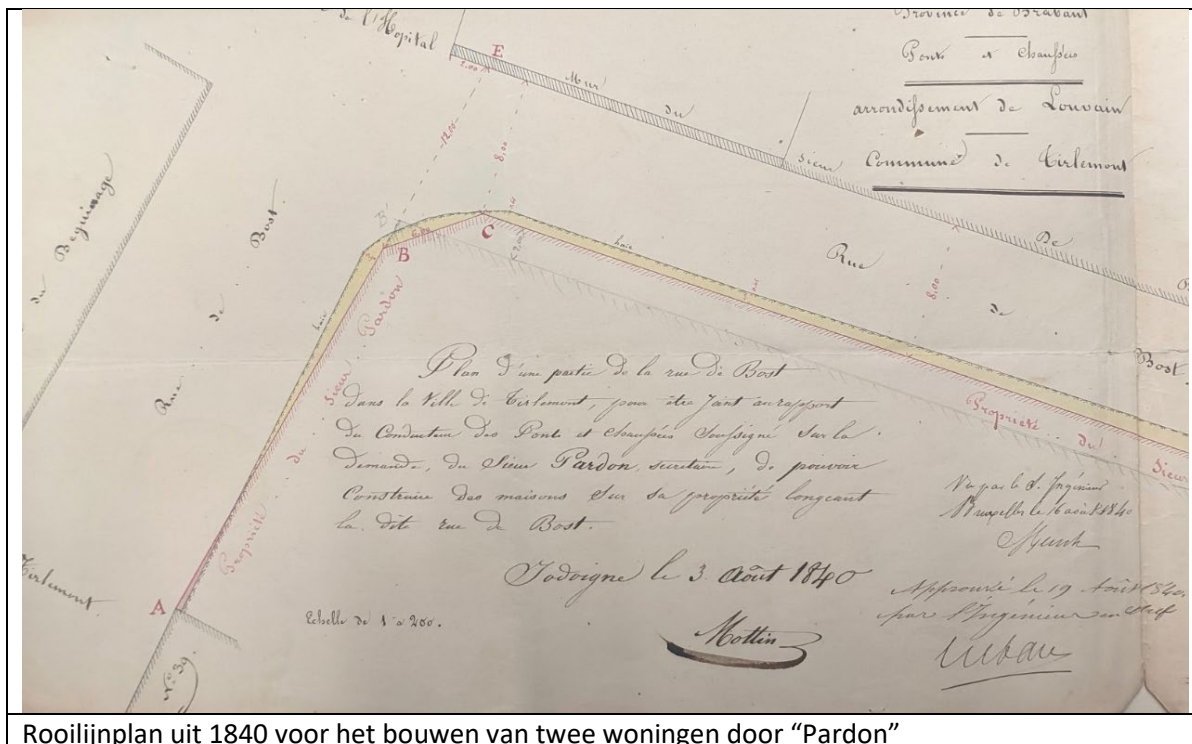 de l'Hopital
Province de Brabant
Ponts et Chaussées
arrondissement de Louvain
Commune de Tirlemont
E
2.00
Mur du Sieur De
12.00
8.00
du Beguinage
Rue de Bost
B'
B
C
2.00
haie
haie
8.00
Rue de Bost
Propriété du Sieur Pardon
Propriété du Sieur
Plan d'une partie de la rue de Bost
dans la Ville de Tirlemont, pour être Joint au rapport
du Conducteur des Ponts et chaussées Soussigné Sur la
Demande, du Sieur Pardon, secretaire, de pouvoir
Construire des maisons Sur sa propriété longeant
la dite rue de Bost.
Jodoigne le 3 Août 1840
Mottin
Vu par le S. Ingénieur
Bruxelles le 16 août 1840
Approuvé le 19 Août 1840
par l'Ingénieur en chef
Tirlemont
A
No. 39
Echelle de 1 a 200.
Rooilijnplan uit 1840 voor het bouwen van twee woningen door “Pardon”